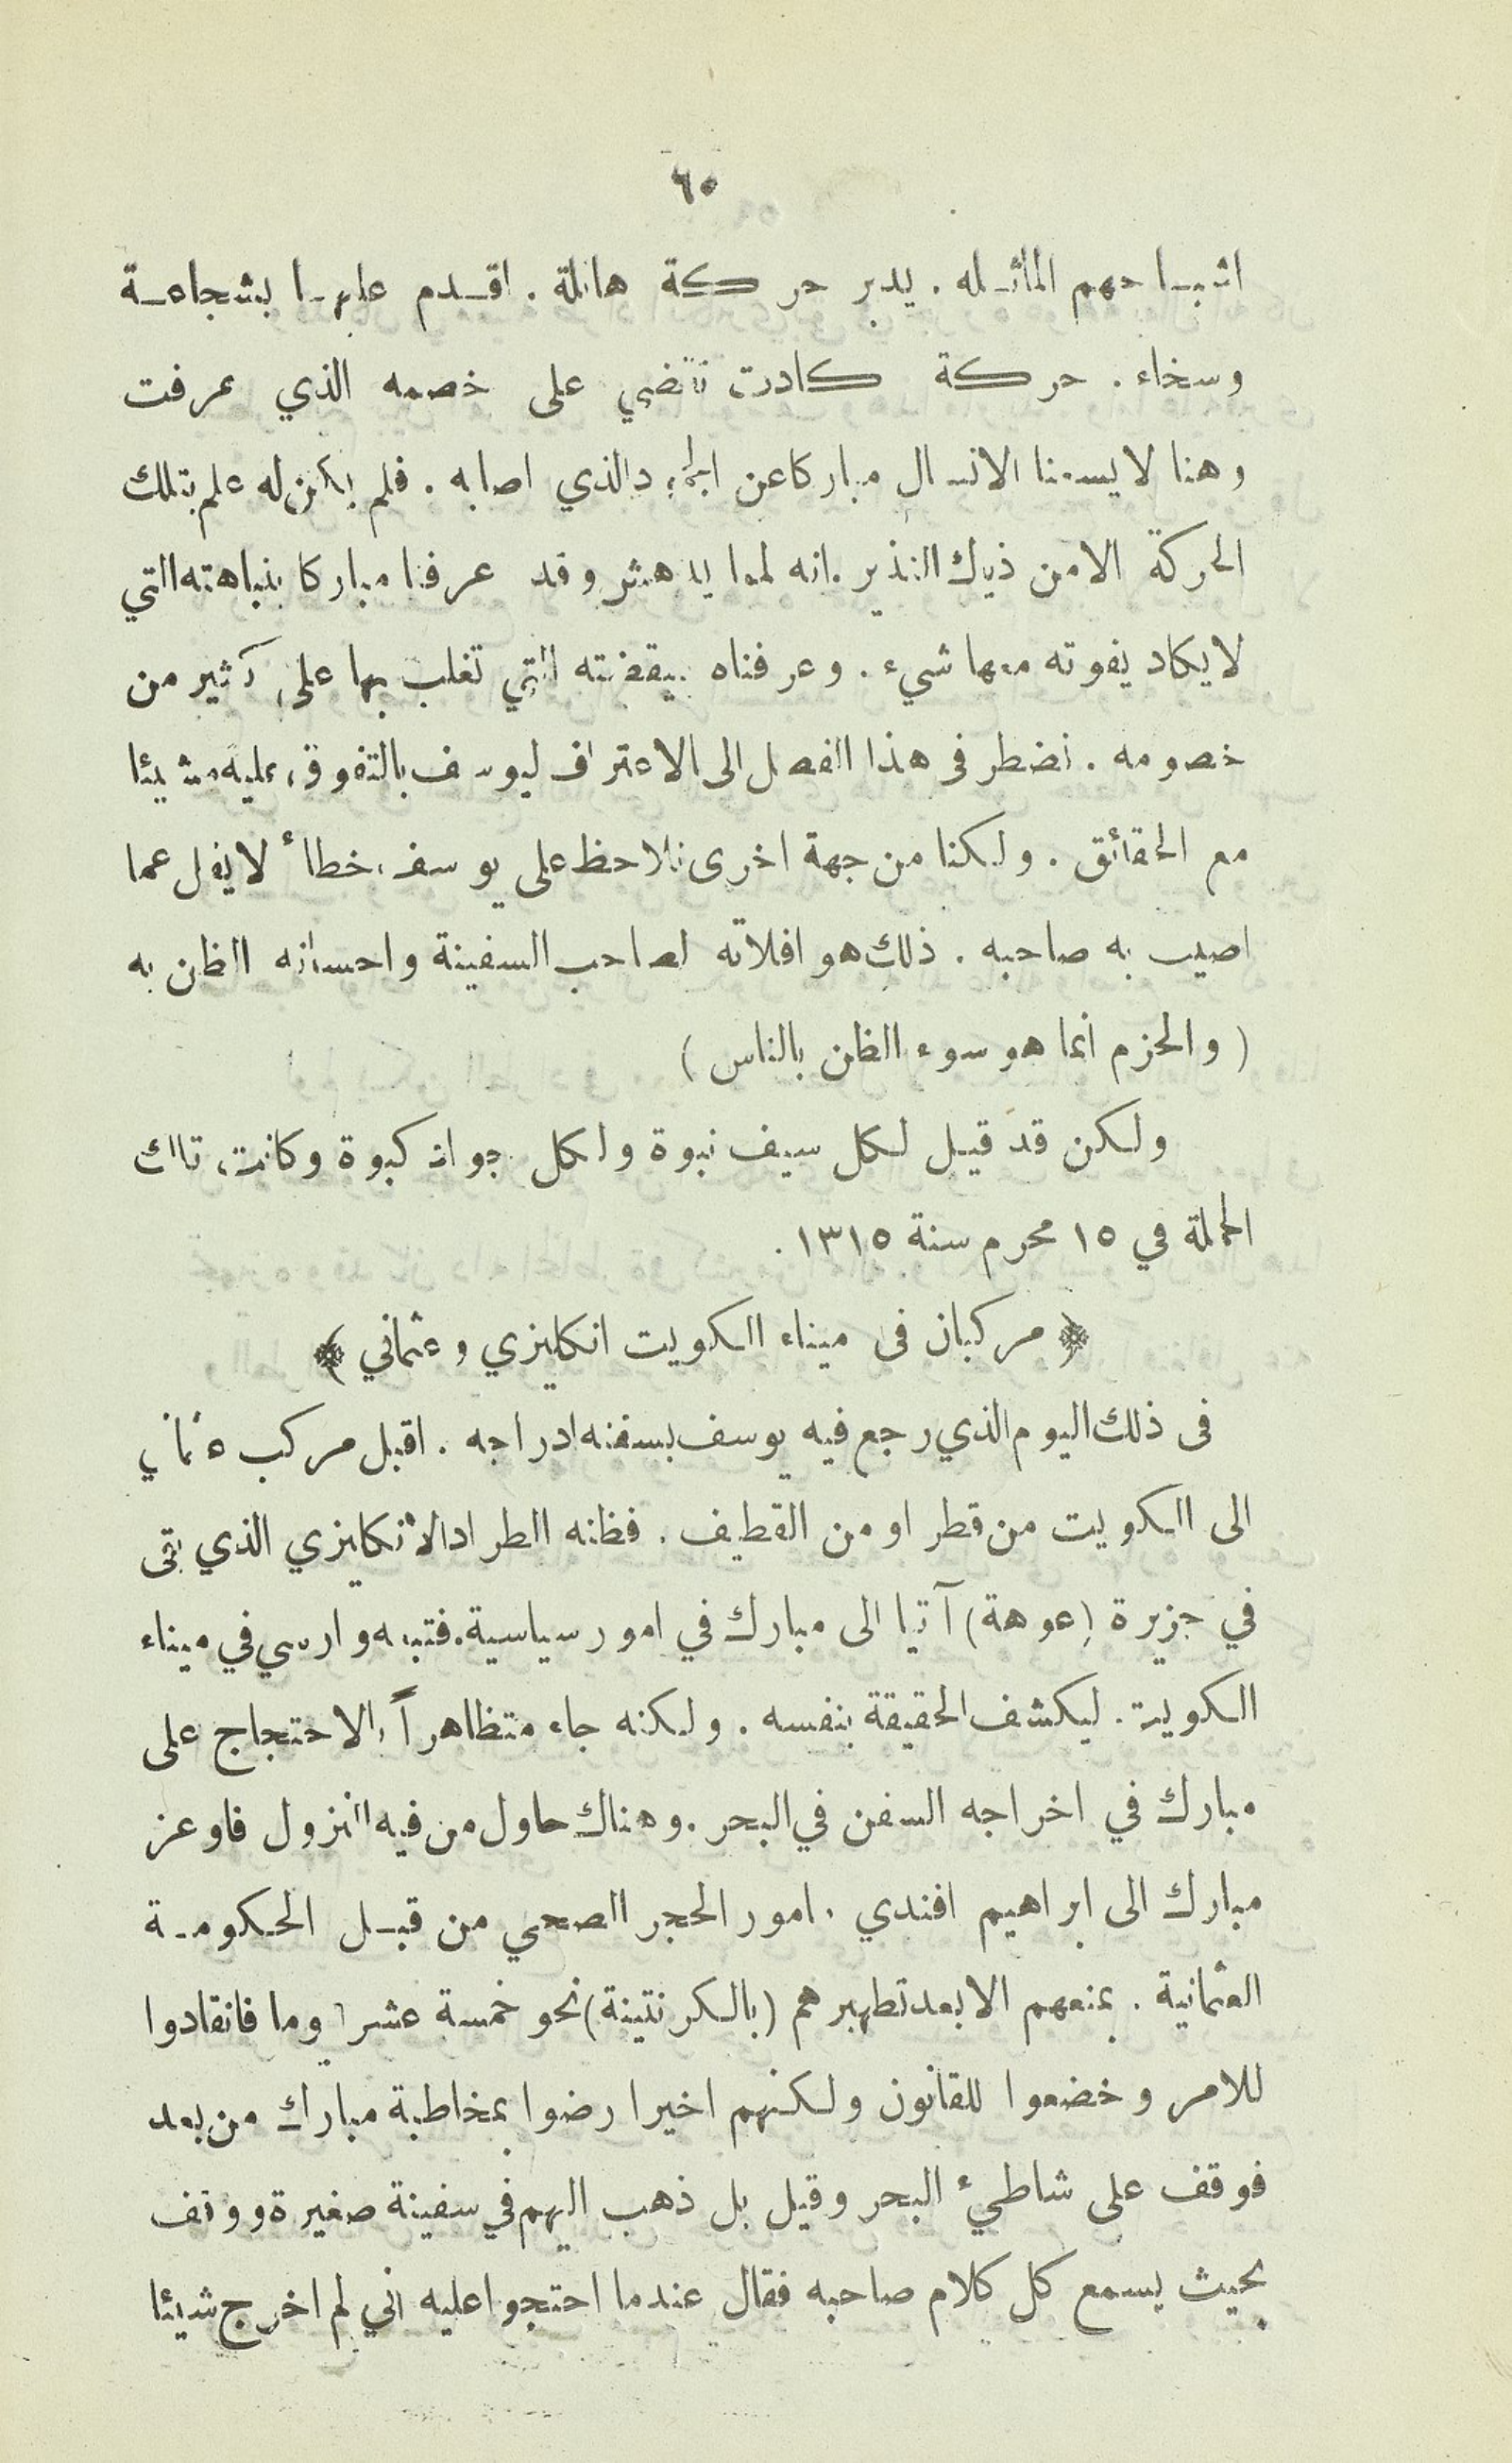 ٦٠
اشباحهم الماثله . يدبر حركة هائلة . اقدم عليها بشجاعة
وسخاء . حركة كادت تقضي على خصمه الذي عرفت
وهنا لا يسعنا الا نسال مباركا عن الجمود الذي اصابه . فلم يكن له علم بتلك
الحركة الا من ذيك النذير . انه لمما يدهش وقد عرفنا مباركا بنباهته التي
لا يكاد يفوته معها شيء . وعرفناه بيقضته التي تغلب بها على كثير من
خصومه . نضطر فى هذا الفصل الى الاعتراف ليوسف بالتفوق عليه مشيئا
مع الحقائق . ولكنا من جهة اخرى نلاحظ على يوسف خطأ لا يقل عما
اصيب به صاحبه . ذلك هو افلاته لصاحب السفينة واحسانه الظن به
( والحزم انما هو سوء الظن بالناس )
ولكن قد قيل لكل سيف نبوة ولكل جواد كبوة وكانت تلك
الحملة في ١٥ محرم سنة ١٣١٥ .
﴿ مركبان فى ميناء الكويت انكليزي وعثماني ﴾
فى ذلك اليوم الذي رجع فيه يوسف بسفنه ادراجه . اقبل مركب عثماني
الى الكويت من قطر او من القطيف . فظنه الطراد الانكليزي الذي بقى
في جزيرة (عوهة) آتيا الى مبارك في امور سياسية . فتبعه وارسي في ميناء
الكويت . ليكشف الحقيقة بنفسه . ولكنه جاء متظاهراً بالاحتجاج على
مبارك في اخراجه السفن في البحر . وهناك حاول من فيه النزول فاوعز
مبارك الى ابراهيم افندي مامور الحجر الصحي من قبل الحكومة
العثمانية . بمنعهم الا بعد تطهيرهم (بالكرنتينة) نحو خمسة عشر يوما فانقادوا
للامر وخضعوا للقانون ولكنهم اخيرا رضوا بمخاطبة مبارك من بعد
فوقف على شاطيء البحر وقيل بل ذهب اليهم في سفينة صغيرة ووقف
بحيث يسمع كل كلام صاحبه فقال عندما احتجوا عليه اني لم اخرج شيئا